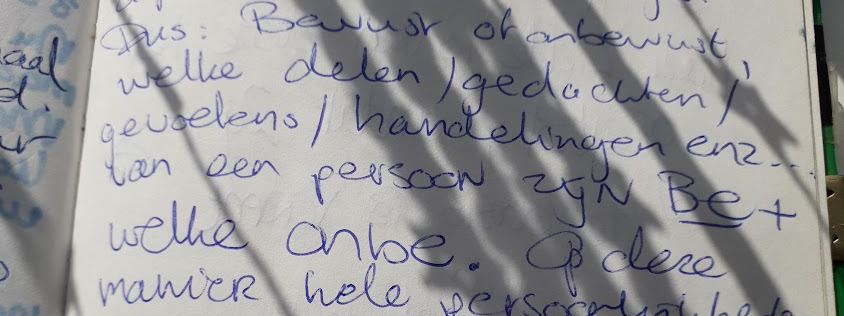 Dus: Bewust of onbewust,
welke delen / gedachten /
gevoelens / handelingen enz...
van een persoon zijn Be +
welke onbe. Op deze
manier hele